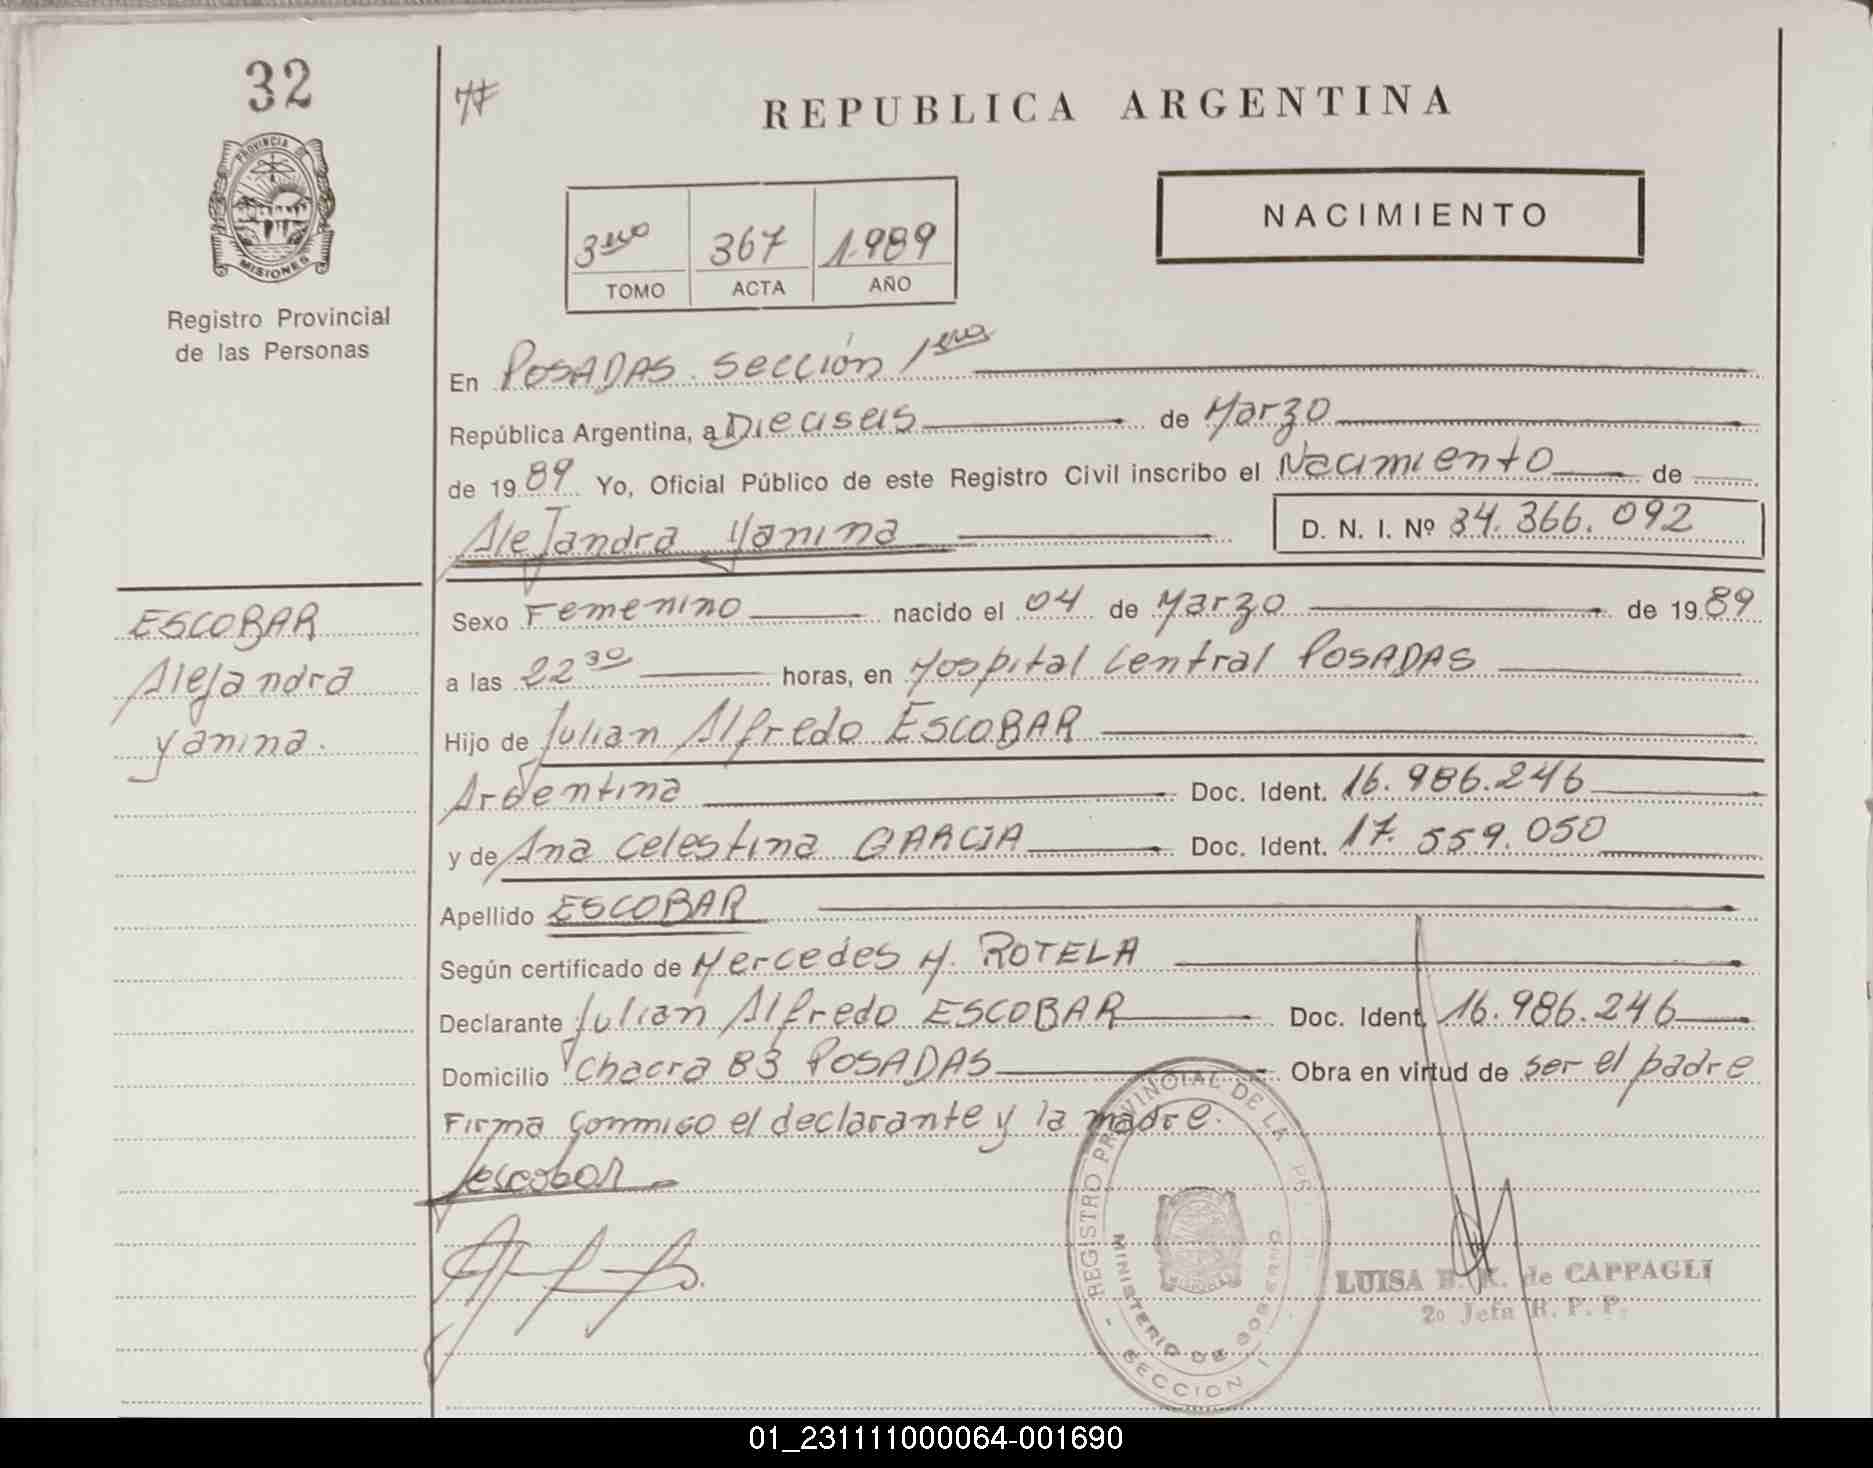 32
PROVINCIA DE
MISIONES
Registro Provincial
de las Personas
REPUBLICA ARGENTINA
NACIMIENTO
3ero 367 1.989
TOMO ACTA AÑO
En POSADAS sección 1era
República Argentina, a Dieciseis de Marzo
de 1989 Yo, Oficial Público de este Registro Civil inscribo el Nacimiento de
Alejandra Yanina D. N. I. Nº 34.366.092
ESCOBAR
Alejandra
yanina.
Sexo Femenino nacido el 04 de Marzo de 1989
a las 22 30 horas, en Hospital Central POSADAS
Hijo de Julian Alfredo ESCOBAR
Argentina Doc. Ident. 16.986.246
y de Ana Celestina GARCIA Doc. Ident. 17.559.050
Apellido ESCOBAR
Según certificado de Mercedes M. ROTELA
Declarante Julian Alfredo ESCOBAR Doc. Ident. 16.986.246
Domicilio Chacra 83 POSADAS Obra en virtud de ser el padre
Firma conmigo el declarante y la madre.
Jescobar
REGISTRO PROVINCIAL DE LA
MINISTERIO DE GOBIERNO
SECCION I
LUISA de CAPPAGLI
2º Jefa R. P. P.
01_231111000064-001690